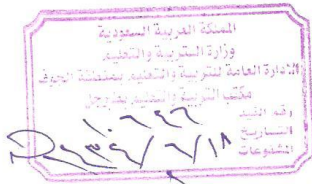 المملكة العربية السعودية
وزارة التربية والتعليم
الإدارة العامة للتربية والتعليم بمنطقة الجوف
مكتب التربية والتعليم بطبرجل
رقم القيد ١٠٦٢٦
التاريخ ١٨/٦/
المشفوعات